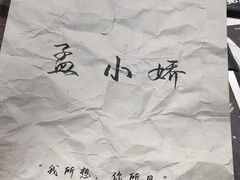 孟小娇
"我所想,你所